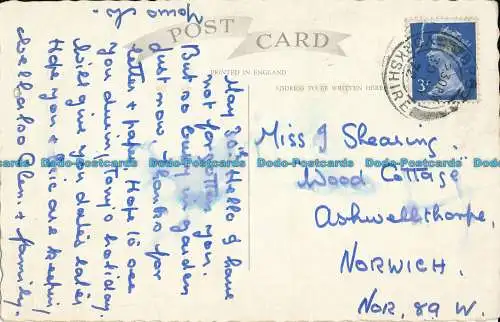 POST CARD
PRINTED IN ENGLAND
ADDRESS TO BE WRITTEN HERE
3P
May 30th Hello I have
not forgotten you.
But so busy in garden
just now. Thanks for
letter & paper. Hope to see
you during Tony's holiday.
Will give you dates later
Hope you & are keeping
well. Glen & family.
Miss J Shearing.
Wood Cottage
Ashwellthorpe,
NORWICH.
NOR. 89 W.
Dodo-Postcards Dodo-Postcards Dodo-Postcards Dodo-Postcards